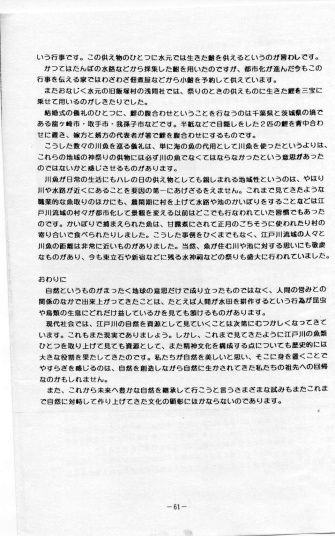 いう行事です。この供え物のひとつに水元では生きた鮒を供えるというのが習わしです。
　かつてはたんぼの水路などから採集した鮒を用いたのですが、都市化が進んだ今もこの
行事を伝える家ではわざわざ佃煮屋などから小鮒を予約して供えています。
　またおなじく水元の旧飯塚村の浅間社では、祭りのときの供えものに生きた鮒を三宝に
乗せて用いるのがしきたりでした。
　結婚式の儀礼のひとつに、鮒の腹合わせということを行なうのは千葉県と茨城県の境で
ある龍ヶ崎市・取手市・我孫子市などです。半紙などで目隠しをした２匹の鮒を背中合わ
せに置き、嫁方と婿方の代表者が箸で鮒を腹合わせにするものです。
　こうした数々の川魚を巡る儀礼は、単に海の魚の代用として川魚を使ったというよりは、
これらの地域の神祭りの供物には必ず川の魚でなくてはならなかったという意思があった
のではないかと感じさせるものがあります。
　川魚が日常の生活にもハレの日の供え物としても親しまれる地域性というのは、やはり
川や水路が近くにあることを要因の第一にあげざるをえません。これまで見てきたような
職業的な魚取りのほかにも、農閑期に村を上げて水路や池のかいぼりをすることなどは江
戸川流域の村々が都市化して景観を変える以前はどこでも行なわれていた習慣でもあった
のです。かいぼりで捕まえられた魚は、甘露煮にされて正月のごちそうに使われたり村の
寄り合いで食べられたりしました。こうした事例をひくまでもなく、江戸川流域の人々と
川魚の距離は非常に近いものがありました。当然、魚が住む川や池に対する思いにも敬虔
なものがあり、今も東立石や新宿などに残る水神祠などの祭りも盛大に行われていました。

おわりに
　自然というものがまったく地球の意思だけで成り立ったものではなく、人間の営みとの
関係のなかで出来上がってきたことは、たとえば人間が水田を耕作するという行為が昆虫
や鳥類の生息にどれだけ益しているかを見ても頷けるものがあります。
　現代社会では、江戸川の自然を資源として見ていくことは次第にむつかしくなってきて
います。これもまた現実でありましょう。しかし、これまで見てきたように江戸川の魚類
ひとつを取り上げて見ても資源として、また精神文化を構成する点についても歴史的には
大きな役割を果たしてきたのです。私たちが自然を美しいと思い、そこに身を置くことで
やすらぎを感じるのは、自然を創造しながら自然に生かされてきた私たちの祖先への回帰
なのかもしれません。
　また、これから未来へ豊かな自然を継承して行こうと言うさまざまな試みもまたこれま
で自然に対峙して作り上げてきた文化の顕彰にほかならないのであります。
－61－